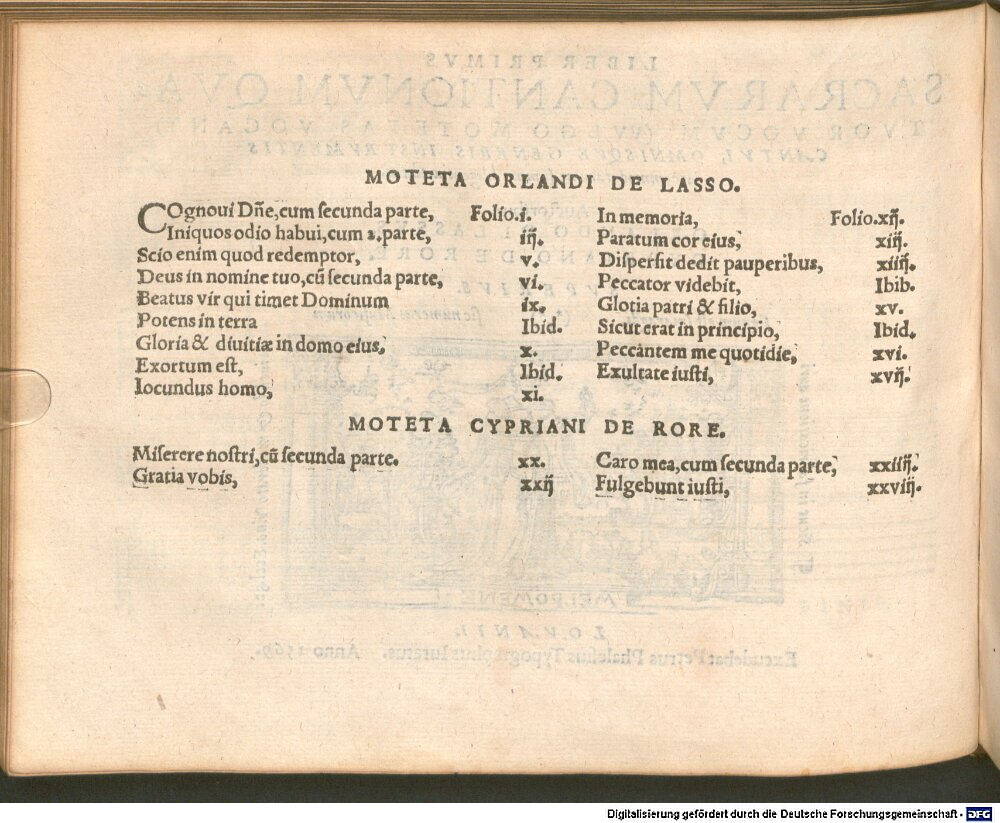 MOTETA ORLANDI DE LASSO.
COgnoui Dñe, cum ſecunda parte, Folio.i.
Iniquos odio habui, cum 2. parte, iij.
Scio enim quod redemptor, v.
Deus in nomine tuo, cũ ſecunda parte, vi.
Beatus vir qui timet Dominum ix.
Potens in terra Ibid.
Gloria & diuitiæ in domo eius, x.
Exortum eſt, Ibid.
Iocundus homo, xi.
In memoria, Folio.xij.
Paratum cor eius, xiij.
Diſperſit dedit pauperibus, xiiij.
Peccator videbit, Ibib.
Glotia patri & filio, xv.
Sicut erat in principio, Ibid.
Peccantem me quotidie, xvi.
Exultate iuſti, xvij.
MOTETA CYPRIANI DE RORE.
Miſerere noſtri, cũ ſecunda parte. xx.
Gratia vobis, xxij
Caro mea, cum ſecunda parte, xxiiij.
Fulgebunt iuſti, xxviij.
Digitalisierung gefördert durch die Deutsche Forschungsgemeinschaft - DFG